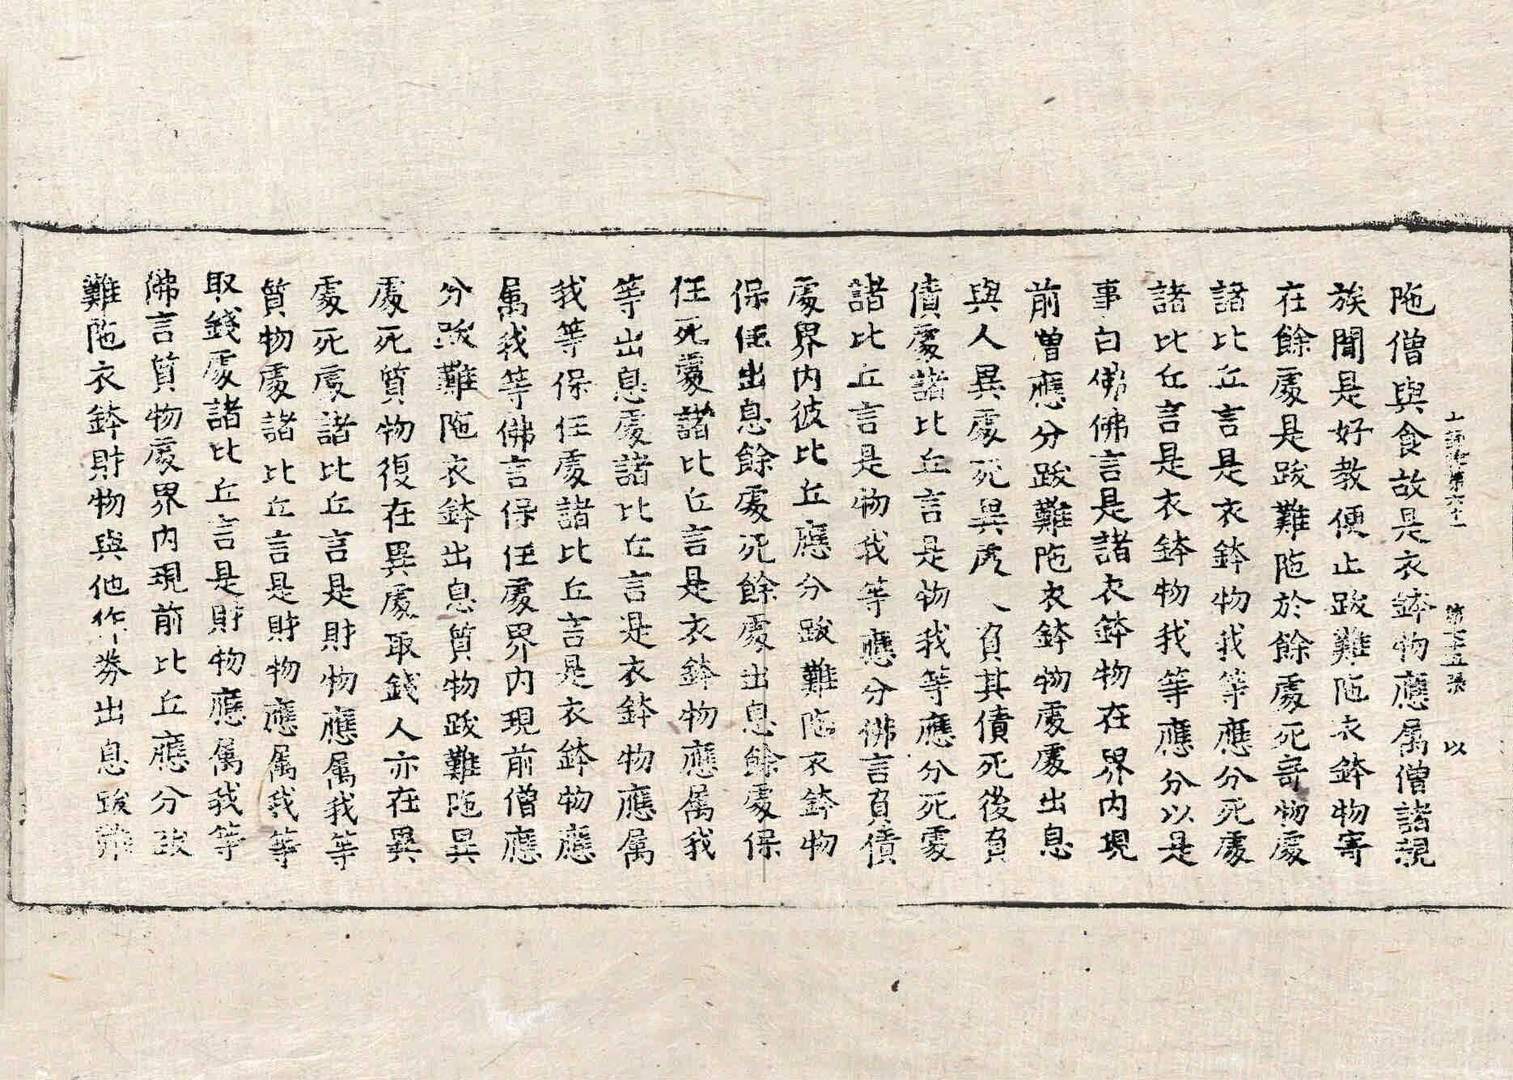 陁僧與食故是衣鉢物應属僧諸親
族聞是好教便止跋難陁衣鉢物寄
在餘處是跋難陁於餘處死寄物處
諸比丘言是衣鉢物我等應分死處
諸比丘言是衣鉢物我等應分以是
事白佛佛言是諸衣鉢物在界内現
前僧應分跋難陁衣鉢物處處出息
與人異處死異處人負其債死後負
債處諸比丘言是物我等應分死處
諸比丘言是物我等應分佛言負債
處界内彼比丘應分跋難陁衣鉢物
保任出息餘處死餘處出息餘處保
任死處諸比丘言是衣鉢物應属我
等出息處諸比丘言是衣鉢物應属
我等保任處諸比丘言是衣鉢物應
属我等佛言保任處界内現前僧應
分跋難陁衣鉢出息質物跋難陁異
處死質物復在異處取錢人亦在異
處死處諸比丘言是財物應属我等
質物處諸比丘言是財物應属我等
取錢處諸比丘言是財物應属我等
佛言質物處界内現前比丘應分跋
難陁衣鉢財物與他作券出息跋難